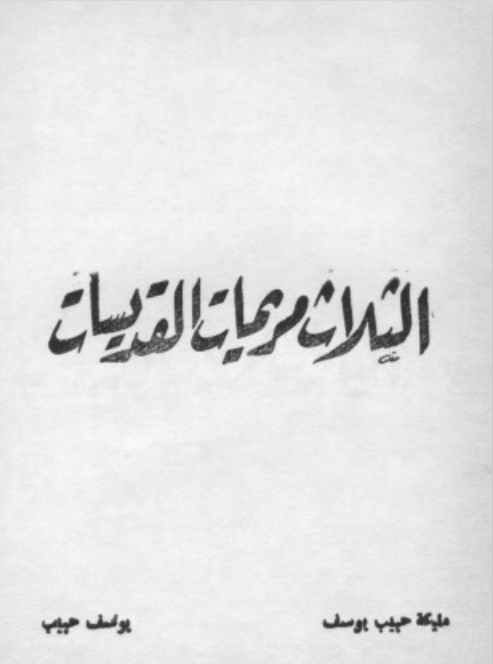 الثلاث مريمات القديسات
مليكة حبيب يوسف
يوسف حبيب